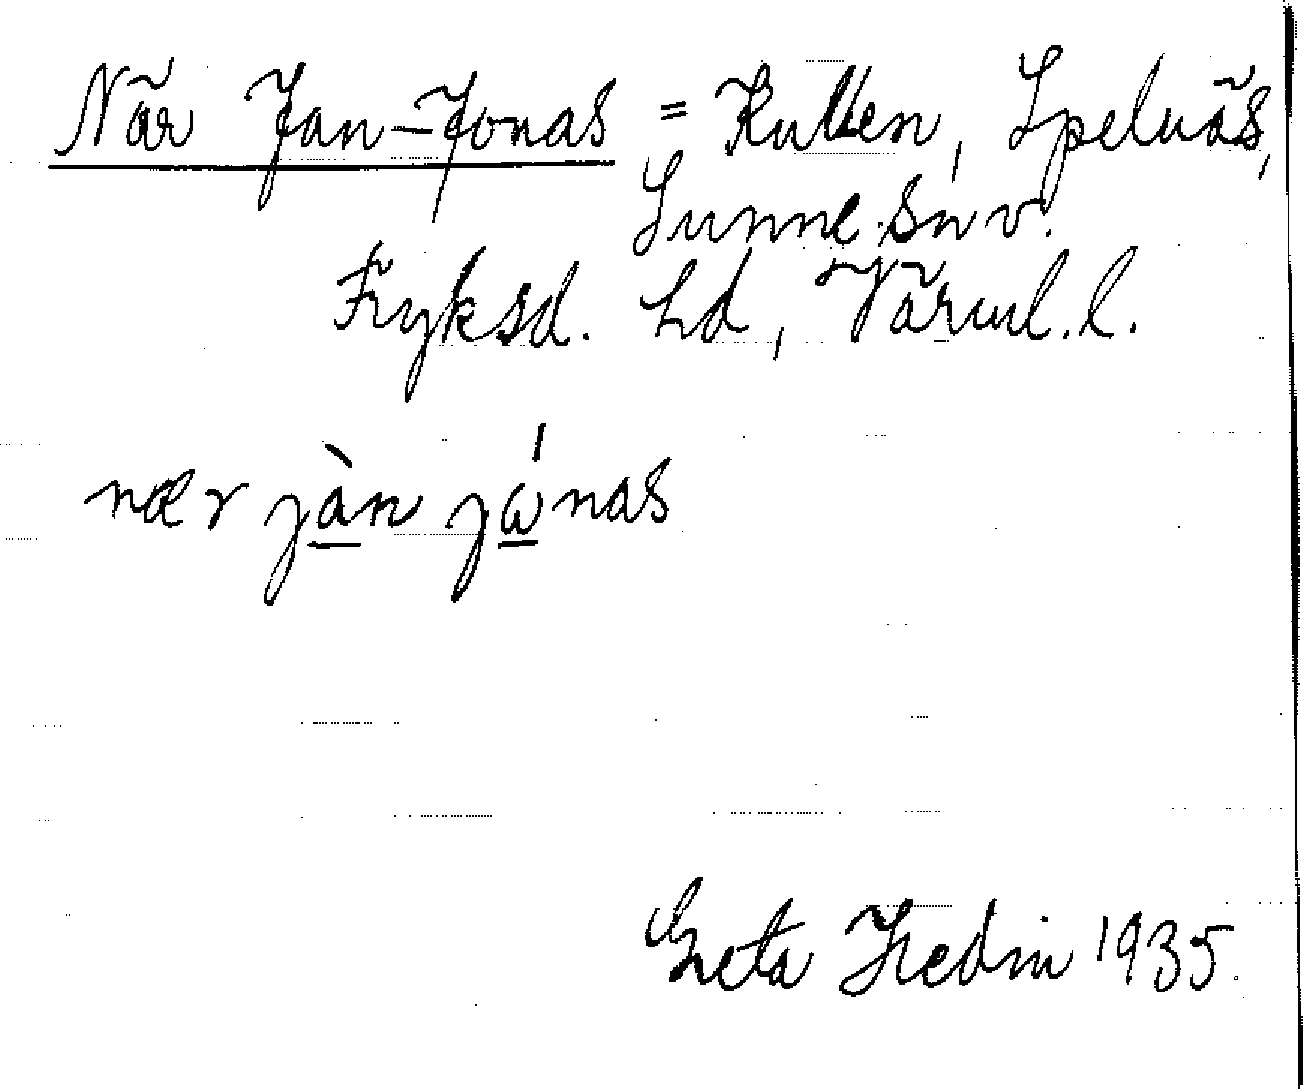 När Jan-Jonas = Kullen, Spelnäs,
Sunne sn v.
Fryksd. hd, Värml. l.
nær jàn jώnas
Greta Hedin 1935.